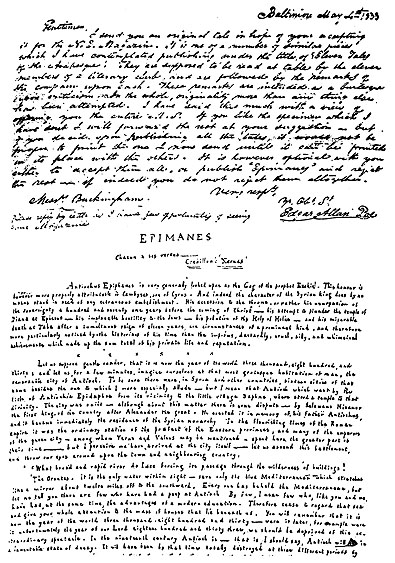 Baltimore May 4th 1833
Gentlemen,
I send you an original tale in hope of your accepting
it for the N.E. Magazine. It is one of a number of similar pieces
which I have contemplated publishing under the title of Eleven Tales
of the Arabesque. They are supposed to be read at table by the eleven
members of a literary club, and are followed by the remarks of
the company upon each. These remarks are intended as a burlesque
upon criticism. In the whole, originality more than any thing else
has been attempted. I have said this much with a view of
offering you the entire M.S. If you like the specimen which I
have send I will forward the rest at your suggestion — but
if you decide upon publishing all the tales, it would not be
proper to print the one I now send until it can be printed
in its place with the others. It is however optional with you
either to accept them all, or publish 'Epimanes' and reject
the rest — if indeed you do not reject them altogether.
Very resply
Yr Obt. St.
Messrs Buckingham.
Edgar Allan Poe
Please reply by letter as I have no opportunity of seeing
your Magazine
EPIMANES
Chacun a ses vertus —
Crebillon's 'Xerxes'
Antiochus Epiphanes is very generally looked upon as the Gog of the prophet Ezekiel. This honour is
however more properly attributable to Cambyses, son of Cyrus. And indeed the character of the Syrian king does by no
means stand in need of any adventitious embellishment. His accession to the throne, or rather his usurpation of
the sovereignty a hundred and seventy one years before the coming of Christ — his attempt to plunder the temple of
Diana at Ephesus — his implacable hostility to the Jews — his pollution of the Holy of Holies — and his miserable
death at Taba after a tumultuous reign of eleven years, are circumstances of a prominent kind, and therefore
more particularly noticed by the historians of his time than the impious, dastardly, cruel, silly, and whimsical
achievements which made up the sum total of his private life and reputation.
Let us suppose, gentle reader, that it is now the year of the world three thousand, eight hundred, and
thirty; and let us, for a few minutes, imagine ourselves at that most grotesque habitation of man, the
remarkable city of Antioch. To be sure there were, in Syria and other countries, sixteen cities of that
name besides the one to which I more especially allude — but I mean that Antioch which went by the
title of Antiochia Epidaphne from its vicinity to the little village Daphne, where stood a temple to that
divinity. The city was built — although about this matter there is some dispute — by Seleucus Nicanor
the first king of the country after Alexander the great — He erected it in memory of his father Antiochus,
and it became immediately the residence of the Syrian monarchy. In the flourishing times of the Roman
empire it was the ordinary station of the Praefect of the Eastern provinces; and many of the emperors
of the queen city — among whom Verus and Valens may be mentioned — spent here the greater part of
their time — but I perceive we have arrived at the city itself — let us ascend this battlement,
and throw our eyes around upon the town and neighbouring country.
'What broad and rapid river do I see forcing its passage through the wilderness of buildings?'
'The Orontes. It is the only water within sight — save only it be that Mediterranean which stretches
like a mirror about twelve miles off to the southward. Every one has beheld the Mediterranean, but
let me tell you there are few who have had a peep at Antioch. By few, I mean few who, like you and me,
have had, at the same time, the advantages of a modern education. Therefore cease to regard that sea
and give your whole attention to the mass of houses that lie beneath us. You will remember that it is
now the year of the world three thousand eight hundred and thirty — were it later, for example were
it unfortunately the year of our Lord eighteen hundred and thirty three, we should be deprived of this
extraordinary spectacle. In the nineteenth century Antioch is — that is, I should say, Antioch will be in
a lamentable state of decay. It will have been by that time totally destroyed at three different periods by